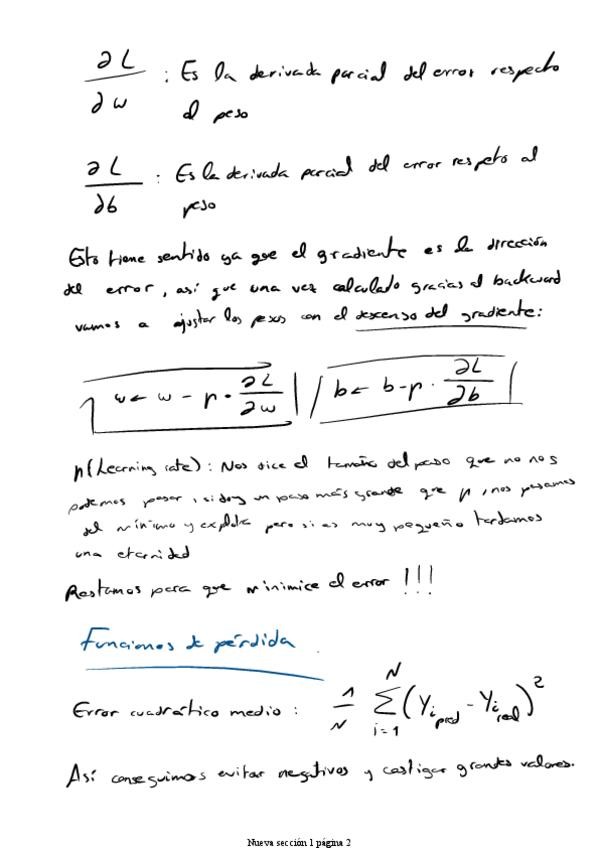 ∂L/∂w : Es la derivada parcial del error respecto
al peso
∂L/∂b : Es la derivada parcial del error respeto al
peso
Esto tiene sentido ya que el gradiente es la dirección
del error, así que una vez calculado gracias al backward
vamos a ajustar los pesos con el descenso del gradiente:
w ← w - η · ∂L/∂w / b ← b - η · ∂L/∂b
η (Learning rate): Nos dice el tamaño del paso que no nos
podemos pasar, si doy un paso más grande que η, nos pasamos
del mínimo y explota pero si es muy pequeño tardamos
una eternidad
Restamos para que minimice el error !!!
Funciones de pérdida
Error cuadrático medio : 1/N ∑ i=1 N (Yi pred - Yi real)²
Así conseguimos evitar negativos y castigar grandes valores.
Nueva sección 1 página 2